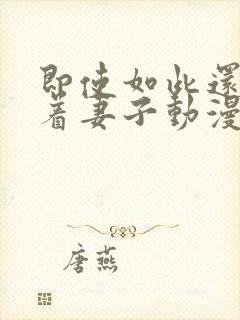 即使如此還
着妻子動漫
唐燕